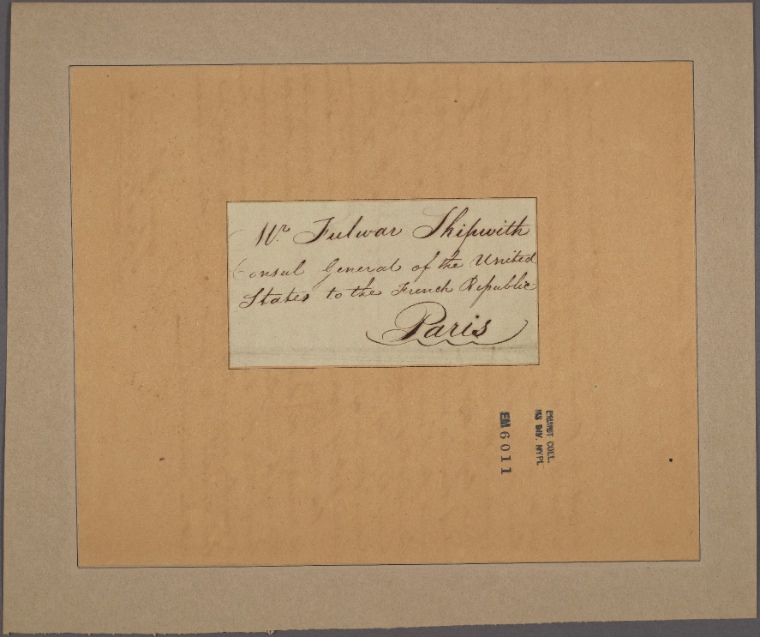 Mr. Fulwar Skipwith
Consul General of the United
States to the French Republic
Paris
EMMET COLL.
MS DIV. NYPL
EM6011